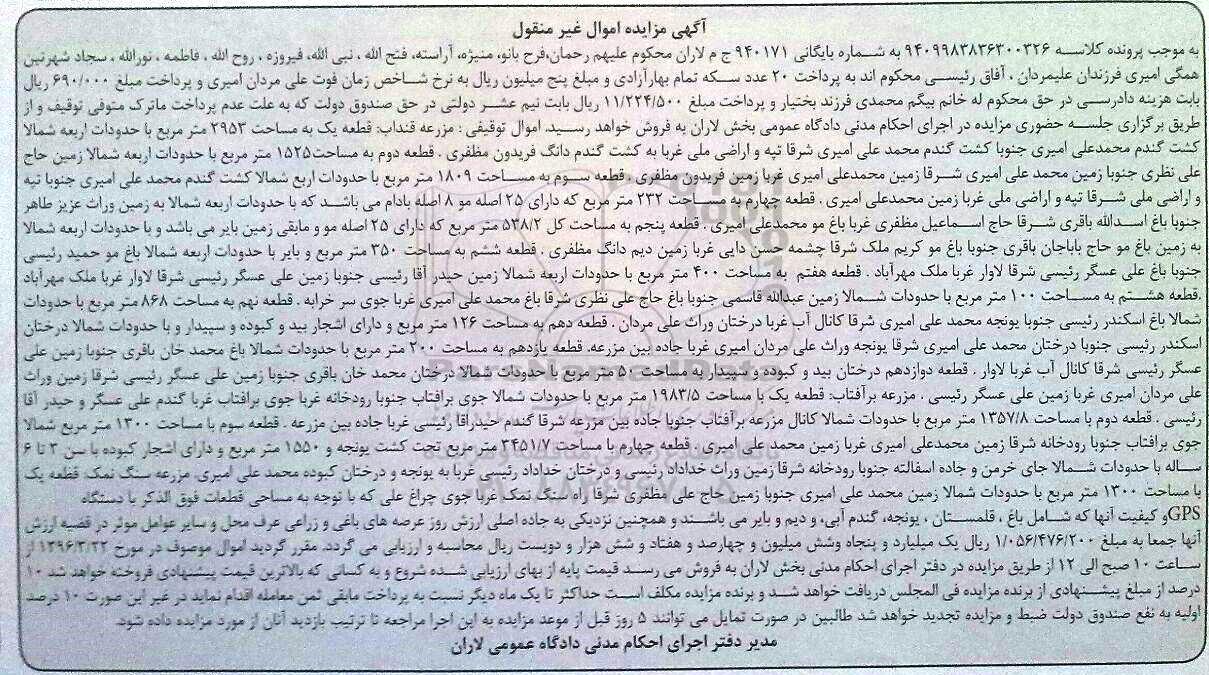 آگهی مزایده اموال غیر منقول
به موجب پرونده کلاسه ۹۴۰۹۹۸۳۸۳۶۳۰۰۳۲۶ به شماره بایگانی ۹۴۰۱۷۱ ج م لاران محکوم علیهم رحمان،فرح بانو، منیژه، آراسته، فتح الله ، نبی الله، فیروزه ، روح الله ، فاطمه ، نورالله ، سجاد شهرتین
همگی امیری فرزندان علیمردان ، آفاق رئیسی محکوم اند به پرداخت ۲۰ عدد سکه تمام بهارآزادی و مبلغ پنج میلیون ریال به نرخ شاخص زمان فوت علی مردان امیری و پرداخت مبلغ ۶۹۰/۰۰۰ ریال
بابت هزینه دادرسی در حق محکوم له خانم بیگم محمدی فرزند بختیار و پرداخت مبلغ ۱۱/۲۲۴/۵۰۰ ریال بابت نیم عشر دولتی در حق صندوق دولت که به علت عدم پرداخت ماترک متوفی توقیف و از
طریق برگزاری جلسه حضوری مزایده در اجرای احکام مدنی دادگاه عمومی بخش لاران به فروش خواهد رسید، اموال توقیفی : مزرعه قنداب: قطعه یک به مساحت ۲۹۵۳ متر مربع با حدودات اربعه شمالا
کشت گندم محمدعلی امیری جنوبا کشت گندم محمد علی امیری شرقا تپه و اراضی ملی غربا به کشت گندم دانگ فریدون مظفری . قطعه دوم به مساحت۱۵۲۵ متر مربع با حدودات اربعه شمالا زمین حاج
علی نظری جنوبا زمین محمد علی امیری شرقا زمین محمدعلی امیری غربا زمین فریدون مظفری . قطعه سوم به مساحت ۱۸۰۹ متر مربع با حدودات اربع شمالا کشت گندم محمد علی امیری جنوبا تپه
و اراضی ملی شرقا تپه و اراضی ملی غربا زمین محمدعلی امیری . قطعه چهارم به مساحت ۲۳۲ متر مربع که دارای ۲۵ اصله مو ۸ اصله بادام می باشد که با حدودات اربعه شمالا به زمین وراث عزیز طاهر
جنوبا باغ اسدالله باقری شرقا حاج اسماعیل مظفری غربا باغ مو محمدعلی امیری . قطعه پنجم به مساحت کل ۵۳۸/۲ متر مربع که دارای ۲۵ اصله مو و مابقی زمین بایر می باشد و با حدودات اربعه شمالا
به زمین باغ مو حاج باباجان باقری جنوبا باغ مو کریم ملک شرقا چشمه حسن دایی غربا زمین دیم دانگ مظفری . قطعه ششم به مساحت ۳۵۰ متر مربع و بایر با حدودات اربعه شمالا باغ مو حمید رئیسی
جنوبا باغ علی عسگر رئیسی شرقا لاوار غربا ملک مهرآباد . قطعه هفتم به مساحت ۴۰۰ متر مربع با حدودات اربعه شمالا زمین حیدر آقا رئیسی جنوبا زمین علی عسگر رئیسی شرقا لاوار غربا ملک مهرآباد
.قطعه هشتم به مساحت ۱۰۰ متر مربع با حدودات شمالا زمین عبدالله قاسمی جنوبا باغ حاج علی نظری شرقا باغ محمد علی امیری غربا جوی سر خرابه . قطعه نهم به مساحت ۸۶۸ متر مربع با حدودات
شمالا باغ اسکندر رئیسی جنوبا یونجه محمد علی امیری شرقا کانال آب غربا درختان وراث علی مردان . قطعه دهم به مساحت ۱۲۶ متر مربع و دارای اشجار بید و کبوده و سپیدار و با حدودات شمالا درختان
اسکندر رئیسی جنوبا درختان محمد علی امیری شرقا یونجه وراث علی مردان امیری غربا جاده بین مزرعه. قطعه یازدهم به مساحت ۲۰۰ متر مربع با حدودات شمالا باغ محمد خان باقری جنوبا زمین علی
عسگر رئیسی شرقا کانال آب غربا لاوار . قطعه دوازدهم درختان بید و کبوده و سپیدار به مساحت ۵۰ متر مربع با حدودات شمالا درختان محمد خان باقری جنوبا زمین علی عسگر رئیسی شرقا زمین وراث
علی مردان امیری غربا زمین علی عسگر رئیسی . مزرعه برآفتاب: قطعه یک با مساحت ۱۹۸۳/۵ متر مربع با حدودات شمالا جوی برافتاب جنوبا رودخانه غربا جوی برافتاب غربا گندم علی عسگر و حیدر آقا
رئیسی . قطعه دوم با مساحت ۱۳۵۷/۸ متر مربع با حدودات شمالا کانال مزرعه برآفتاب جنوبا جاده بین مزرعه شرقا گندم حیدراقا رئیسی غربا جاده بین مزرعه . قطعه سوم با مساحت ۱۳۰۰ متر مربع شمالا
جوی برافتاب جنوبا رودخانه شرقا زمین محمدعلی امیری غربا زمین محمد علی امیری . قطعه چهارم با مساحت ۳۴۵۱/۷ متر مربع تحت کشت یونجه و ۱۵۵۰ متر مربع و دارای اشجار کبوده با سن ۳ تا ۶
ساله با حدودات شمالا جای خرمن و جاده اسفالته جنوبا رودخانه شرقا زمین وراث خداداد رئیسی و درختان خداداد رئیسی غربا به یونجه و درختان کبوده محمد علی امیری. مزرعه سنگ نمک: قطعه یک
با مساحت ۱۳۰۰ متر مربع با حدودات شمالا زمین محمد علی امیری جنوبا زمین حاج علی مظفری شرقا راه سنگ نمک غربا جوی چراغ علی که با توجه به مساحی قطعات فوق الذکر با دستگاه
GPSو کیفیت آنها که شامل باغ ، قلمستان ، یونجه، گندم آبی، و دیم و بایر می باشند و همچنین نزدیکی به جاده اصلی ارزش روز عرصه های باغی و زراعی عرف محل و سایر عوامل موثر در قضیه ارزش
آنها جمعا به مبلغ ۱/۰۵۶/۴۷۶/۲۰۰ ریال یک میلیارد و پنجاه وشش میلیون و چهارصد و هفتاد و شش هزار و دویست ریال محاسبه و ارزیابی می گردد. مقرر گردید اموال موصوف در مورخ ۱۳۹۶/۳/۲۲ از
ساعت ۱۰ صبح الی ۱۲ از طریق مزایده در دفتر اجرای احکام مدنی بخش لاران به فروش می رسد قیمت پایه از بهای ارزیابی شده شروع و به کسانی که بالاترین قیمت پیشنهادی فروخته خواهد شد ۱۰
درصد از مبلغ پیشنهادی از برنده مزایده فی المجلس دریافت خواهد شد و برنده مزایده مکلف است حداکثر تا یک ماه دیگر نسبت به پرداخت مابقی ثمن معامله اقدام نماید در غیر این صورت ۱۰ درصد
اولیه به نفع صندوق دولت ضبط و مزایده تجدید خواهد شد طالبین در صورت تمایل می توانند ۵ روز قبل از موعد مزایده به این اجرا مراجعه تا ترتیب بازدید آنان از مورد مزایده داده شود.
مدیر دفتر اجرای احکام مدنی دادگاه عمومی لاران